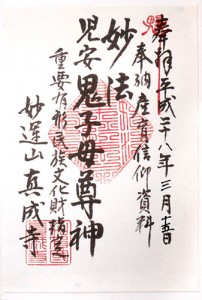 奉拝 平成二十八年三月十五日
奉納産育信仰資料
妙法
児安鬼子母尊神
重要有形民族文化財指定
妙運山真成寺